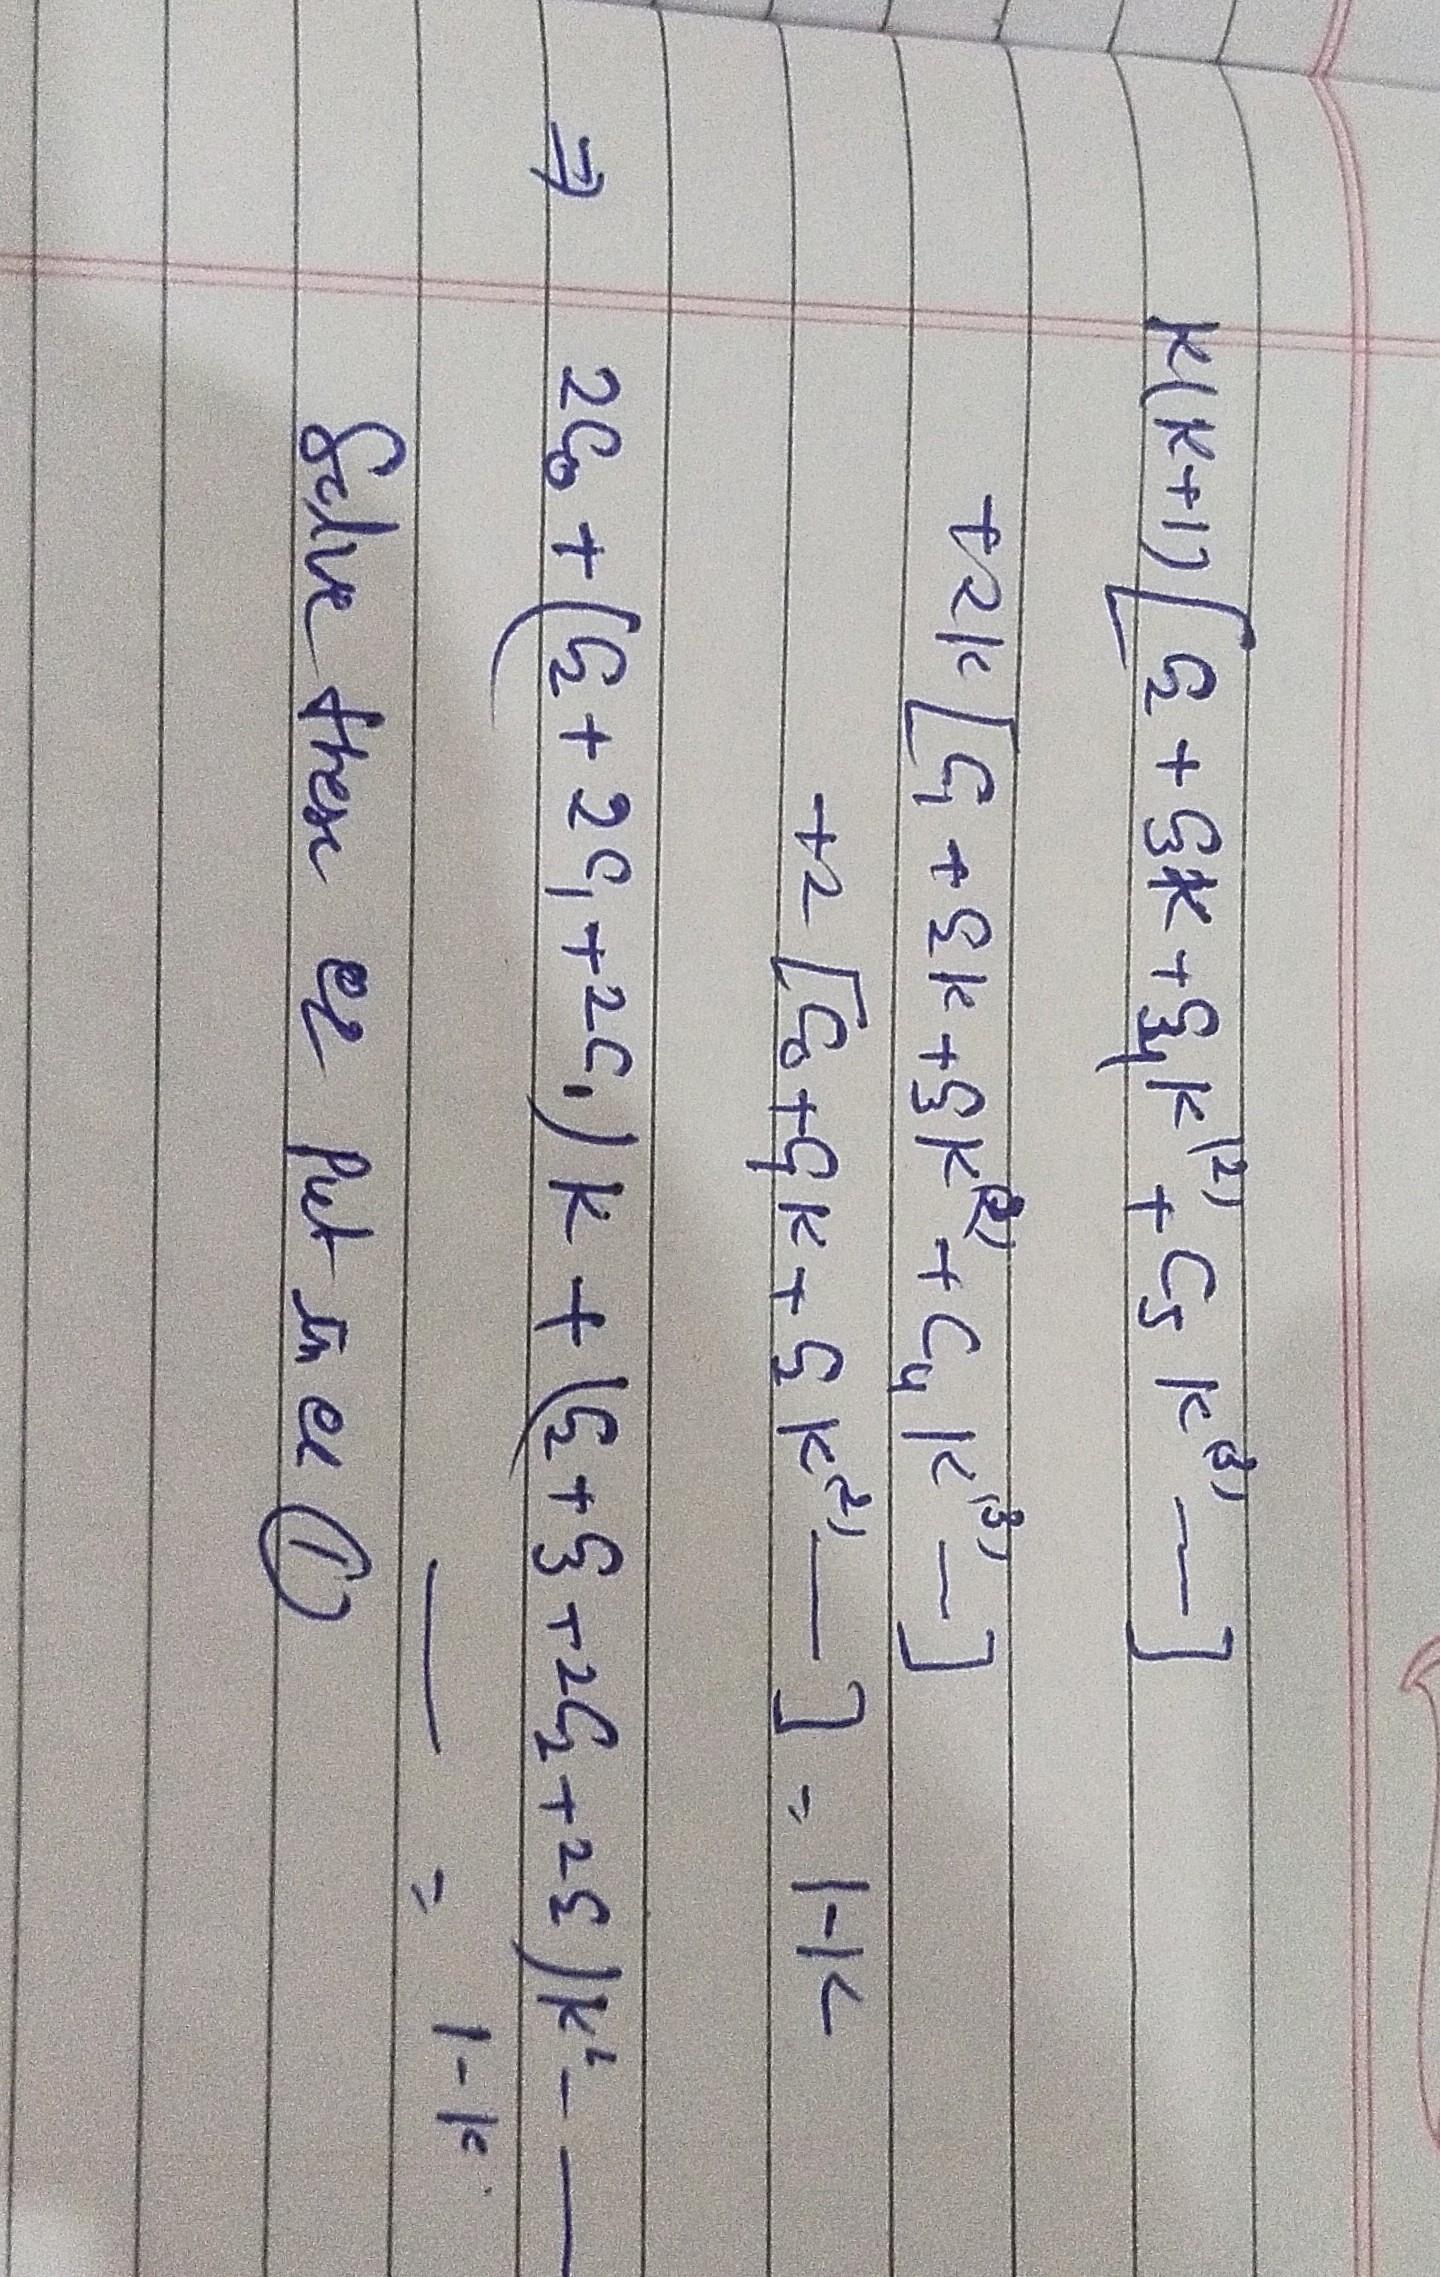 K(K+1) [C₂ + C₃K + C₄K⁽²⁾ + C₅ K⁽³⁾ ---]
+2K [C₁ + C₂K + C₃K⁽²⁾ + C₄ K⁽³⁾ --]
+2 [C₀ + C₁K + C₂ K⁽²⁾ --] = 1-K
⇒ 2C₀ + (C₂ + 2C₁ + 2C₁) K + (C₂ + C₃ + 2C₂ + 2C₃) K² - --
-- = 1-K
Solve these eq Put in eq ①